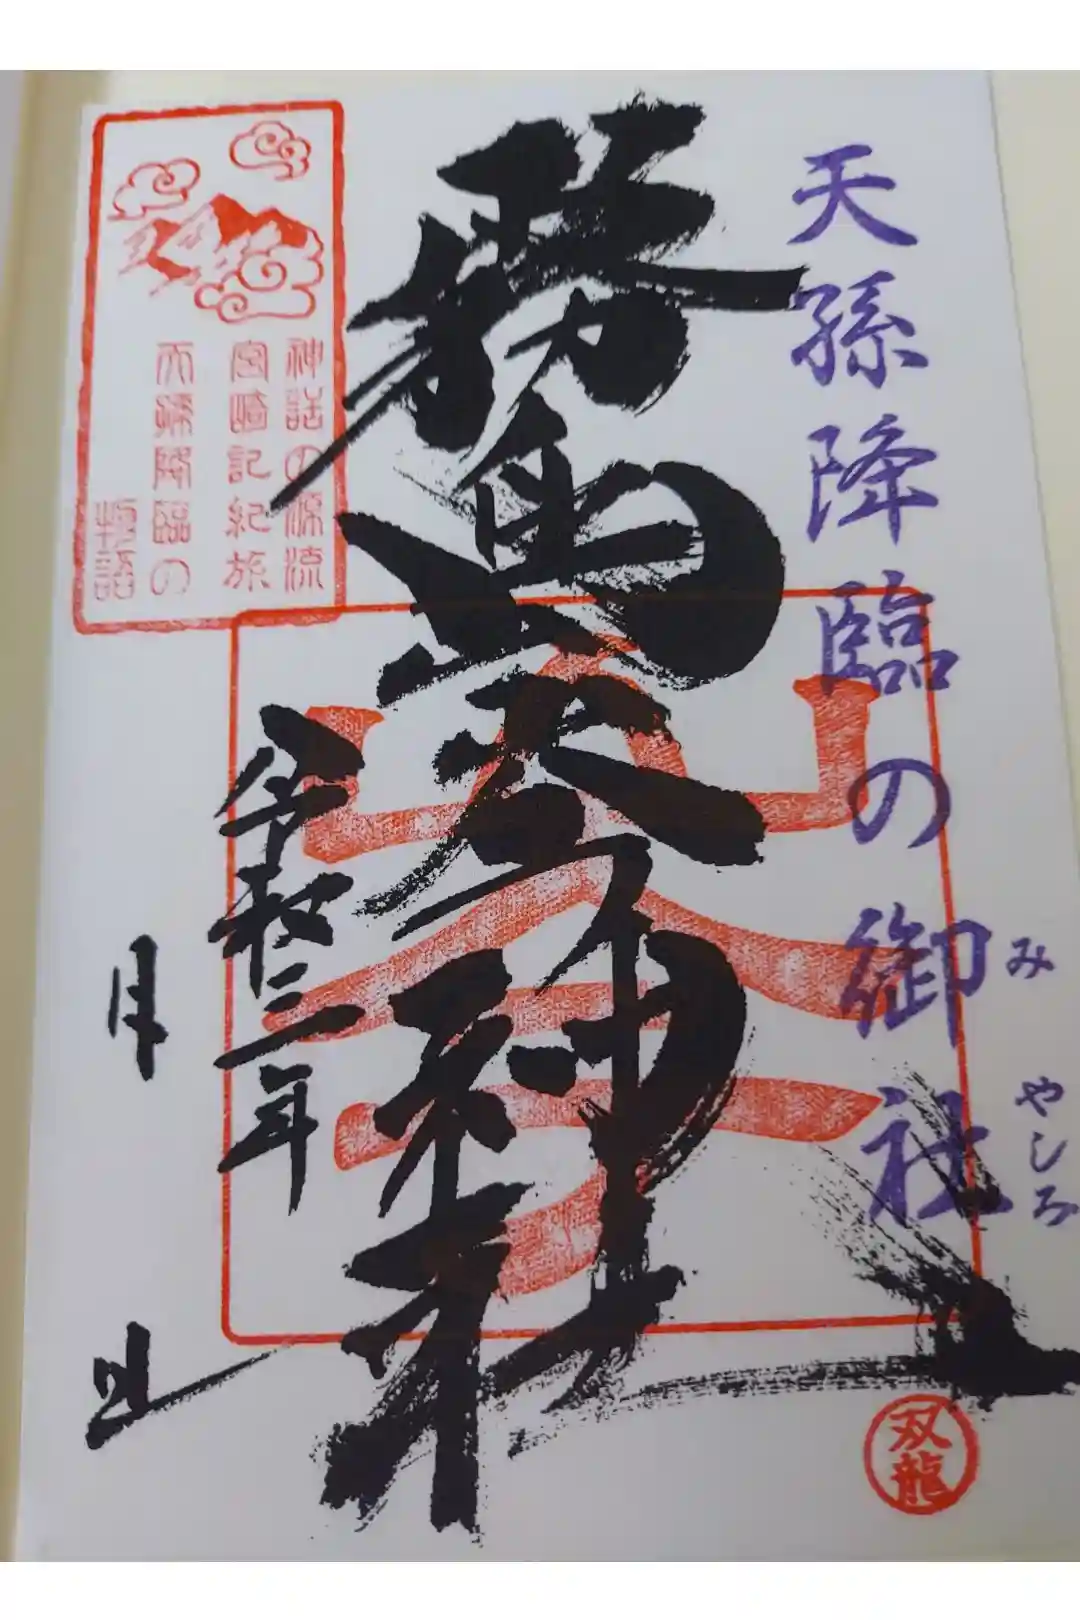 天孫降臨の御社
み
やしろ
霧島岑神社
令和三年
月
日
神話の源流
宮崎記紀旅
天孫降臨の
物語
双龍